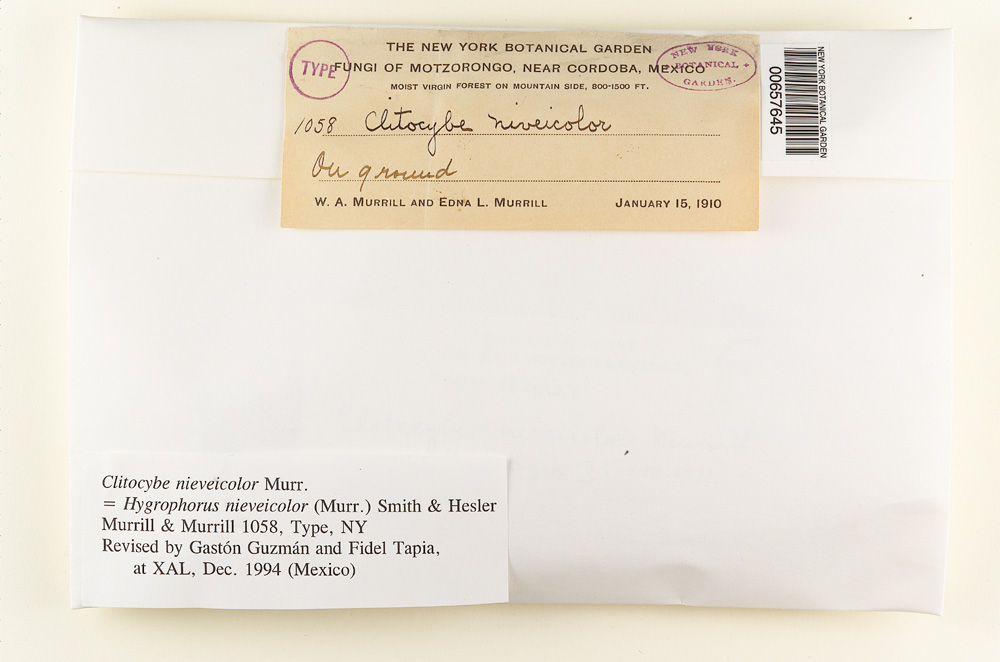 THE NEW YORK BOTANICAL GARDEN
TYPE
NEW YORK
BOTANICAL
GARDEN.
FUNGI OF MOTZORONGO, NEAR CORDOBA, MEXICO
MOIST VIRGIN FOREST ON MOUNTAIN SIDE, 800-1500 FT.
1058 Clitocybe niveicolor
On ground
W. A. MURRILL AND EDNA L. MURRILL JANUARY 15, 1910
NEW YORK BOTANICAL GARDEN
00657645
Clitocybe nieveicolor Murr.
= Hygrophorus nieveicolor (Murr.) Smith & Hesler
Murrill & Murrill 1058, Type, NY
Revised by Gastón Guzmán and Fidel Tapia,
at XAL, Dec. 1994 (Mexico)